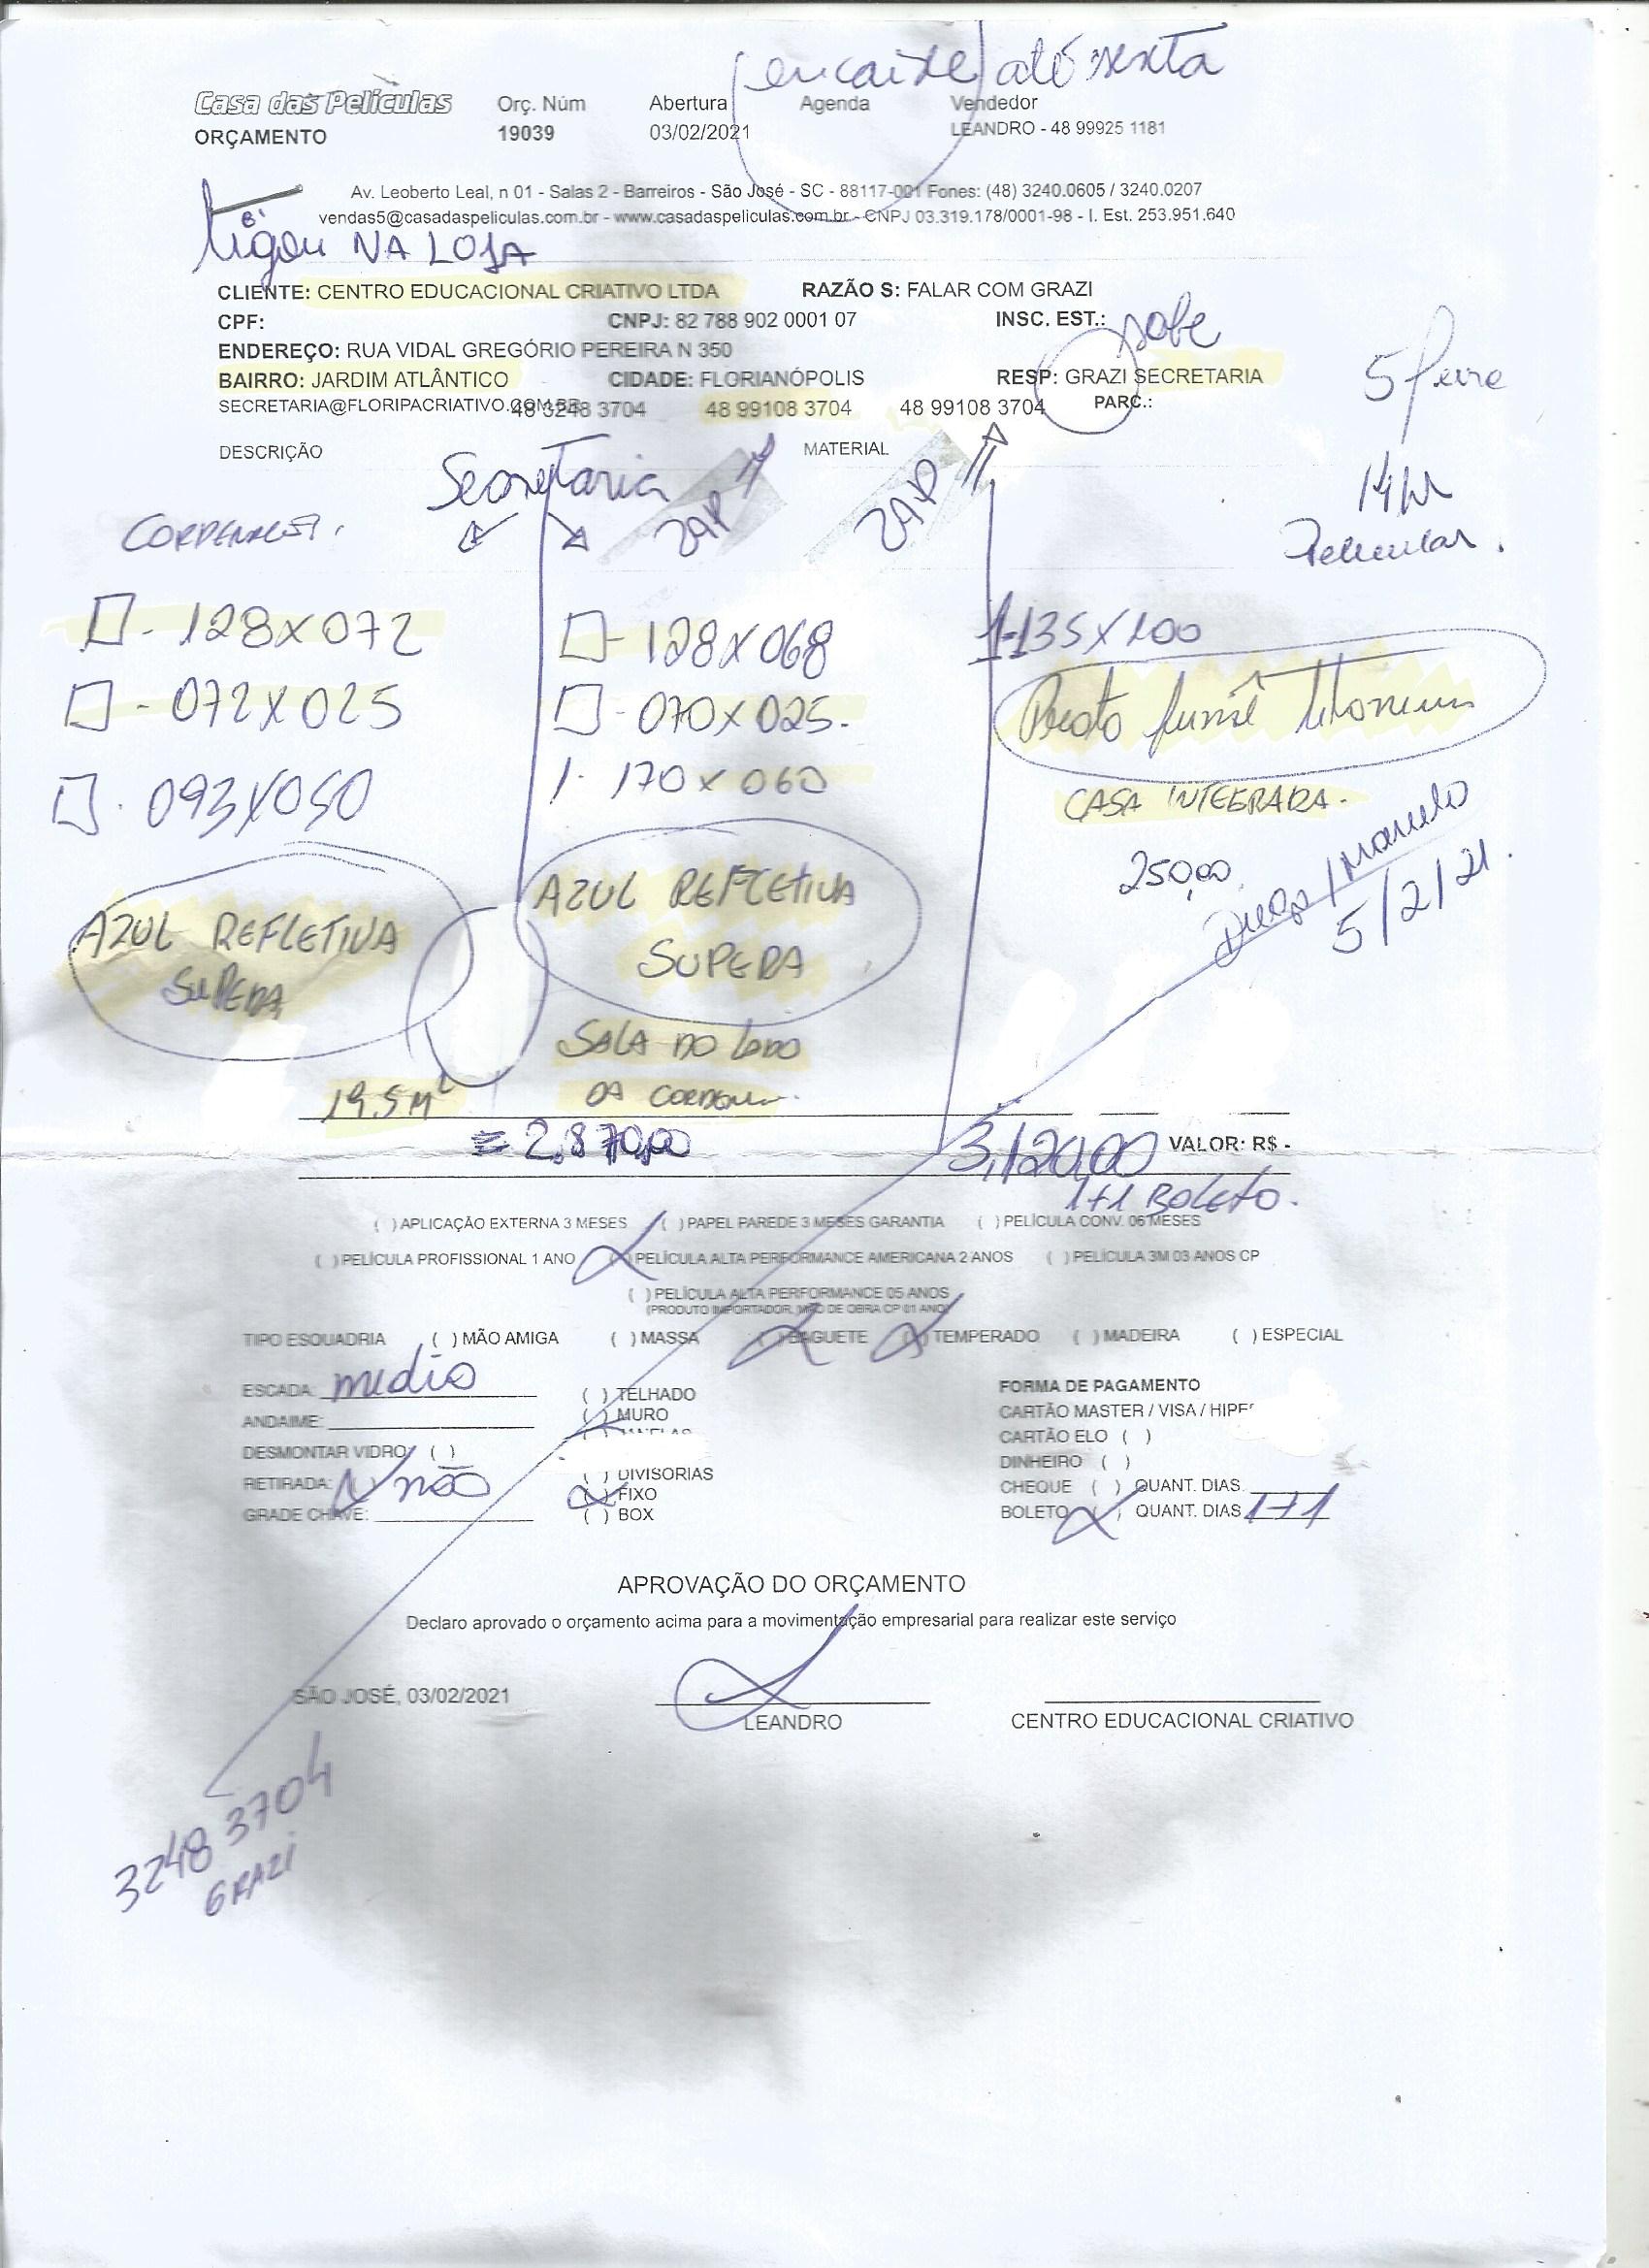 encaixe até sexta
Casa das Películas Orç. Núm Abertura Agenda Vendedor
ORÇAMENTO 19039 03/02/2021 LEANDRO - 48 99925 1181
Av. Leoberto Leal, n 01 - Salas 2 - Barreiros - São José - SC - 88117-001 Fones: (48) 3240.0605 / 3240.0207
vendas5@casadaspeliculas.com.br - www.casadaspeliculas.com.br - CNPJ 03.319.178/0001-98 - I. Est. 253.951.640
Ligou NA LOJA
CLIENTE: CENTRO EDUCACIONAL CRIATIVO LTDA RAZÃO S: FALAR COM GRAZI
CPF: CNPJ: 82 788 902 0001 07 INSC. EST.:
sabe
ENDEREÇO: RUA VIDAL GREGÓRIO PEREIRA N 350
BAIRRO: JARDIM ATLÂNTICO CIDADE: FLORIANÓPOLIS RESP: GRAZI SECRETARIA
5 feira
SECRETARIA@FLORIPACRIATIVO.COM.BR 48 3248 3704 48 99108 3704 48 99108 3704 PARC.:
DESCRIÇÃO MATERIAL
Secretaria ZAP ZAP 14h
- 128x072 - 128x068 1-135x100
- 072x025 - 070x025. Preto fumê titanium
- 093x050 1- 170x060 CASA INTEGRADA.
250,00
AZUL REFLETIVA AZUL REFLETIVA
SUPERA SUPERA
5/2/21.
SALA DO LADO
19,5M² DA
= 2.870,00 3,120,00 VALOR: R$ -
1+1 BOLETO.
( ) APLICAÇÃO EXTERNA 3 MESES ( ) PAPEL PAREDE 3 MESES GARANTIA ( ) PELÍCULA CONV. 06 MESES
( ) PELÍCULA PROFISSIONAL 1 ANO ( ) PELÍCULA ALTA PERFORMANCE AMERICANA 2 ANOS ( ) PELÍCULA 3M 03 ANOS CP
( ) PELÍCULA ALTA PERFORMANCE 05 ANOS
(PRODUTO IMPORTADOR, MÃO DE OBRA CP 01 ANO)
TIPO ESQUADRIA ( ) MÃO AMIGA ( ) MASSA ( ) BAGUETE ( ) TEMPERADO ( ) MADEIRA ( ) ESPECIAL
ESCADA: medio
ANDAIME:
DESMONTAR VIDRO: ( )
RETIRADA: não
GRADE CHAVE:
( ) TELHADO
( ) MURO
( ) DIVISORIAS
( ) FIXO
( ) BOX
FORMA DE PAGAMENTO
CARTÃO MASTER / VISA / HIPER
CARTÃO ELO ( )
DINHEIRO ( )
CHEQUE ( ) QUANT. DIAS
BOLETO ( ) QUANT. DIAS 1+1
APROVAÇÃO DO ORÇAMENTO
Declaro aprovado o orçamento acima para a movimentação empresarial para realizar este serviço
SÃO JOSÉ, 03/02/2021
LEANDRO CENTRO EDUCACIONAL CRIATIVO
3248 3704
GRAZI